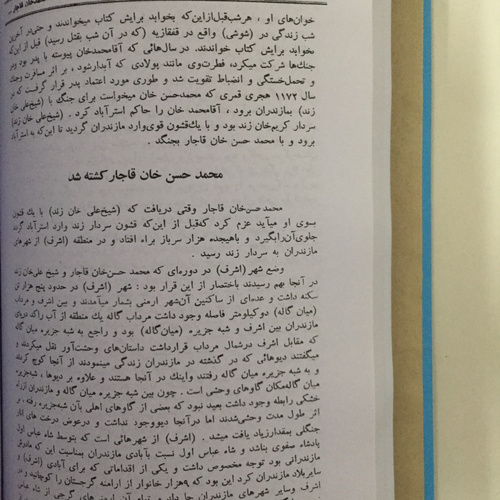 خوان‌های او ، هرشب‌قبل‌ازاین‌که بخوابد برایش کتاب میخواندند و حتی‌در آخرین
شب زندگی در (شوشی) واقع در قفقازیه (که در آن شب بقتل رسید) قبل از این‌که
بخوابد برایش کتاب خواندند. در سال‌هائی که آقامحمدخان پیوسته با پدر بود و در
جنك‌ها شرکت میکرد، فطرت‌وی مانند پولادی که آبدارشود ، بر اثر مسافرت وجنك
و تحمل‌خستگی و انضباط تقویت شد و طوری مورد اعتماد پدر قرار گرفت که در
سال ۱۱۷۲ هجری قمری که محمدحسن خان میخواست برای جنگ با (شیخ‌علی خان
زند) بمازندران برود ، آقامحمد خان را حاکم استرآباد کرد . (شیخ‌علی خان زند)
سردار کریم‌خان زند بود و با یك‌قشون قوی‌وارد مازندران گردید تا این‌که به استرآباد
برود و با محمد حسن خان قاجار بجنگد .
محمد حسن خان قاجار کشته شد
محمدحسن‌خان قاجار وقتی دریافت که (شیخ‌علی خان زند) با یك قشون
بسوی او میآید عزم کرد که‌قبل از این‌که قشون سردار زند وارد استرآباد گردد
جلوی‌آن‌رابگیرد و باهیجده هزار سرباز براه افتاد و در منطقه (اشرف) از شهرهای
مازندران به سردار زند رسید .
وضع شهر (اشرف) در دوره‌ای که محمد حسن‌خان قاجار و شیخ علی‌خان زند
در آنجا بهم رسیدند باختصار از این قرار بود : شهر (اشرف) در حدود پنج هزار تن
سکنه داشت و عده‌ای از ساکنین آن‌شهر ارمنی بشمار میآمدند و بین اشرف و مرداب
(میان گاله) دوکیلومتر فاصله وجود داشت مرداب گاله یك منطقه از آب راکد دریای
مازندران بین اشرف و شبه جزیره (میان‌گاله) بود و راجع به شبه جزیره میان گاله
که مقابل اشرف درشمال مرداب قرارداشت داستان‌های وحشت‌آور نقل میکردند و
میگفتند دیوهائی که در گذشته در مازندران زندگی مینمودند از آنجا کوچ کرده‌اند
و به شبه جزیره میان گاله رفتند واینك در آنجا هستند و علاوه بر دیوها ، شبه‌جزیره
میان گاله‌مکان گاوهای وحشی است . چون بین شبه جزیره میان گاله و مازندران از راه
خشکی رابطه وجود داشت بعید نبود که بعضی از گاوهای اهلی بآن شبه‌جزیره رفته ، بر
اثر طول مدت وحشی‌شدند اما درآنجا دیووجود نداشت و درعوض درخت های انار
جنگلی بمقدارزیاد یافت میشد . (اشرف) از شهرهائی است که بتوسط شاه عباس اول
پادشاه صفوی بناشد و شاه عباس اول نسبت بآبادی مازندران بمناسبت این که مادرش
مازندرانی بود توجه مخصوص داشت و یکی از اقداماتی که برای آبادی (اشرف) و
سایربلاد مازندران کرد این بود که ۹هزار خانوار از ارامنه گرجستان را کوچانید و در
اشرف وسایر شهرهای مازندران جا داد و